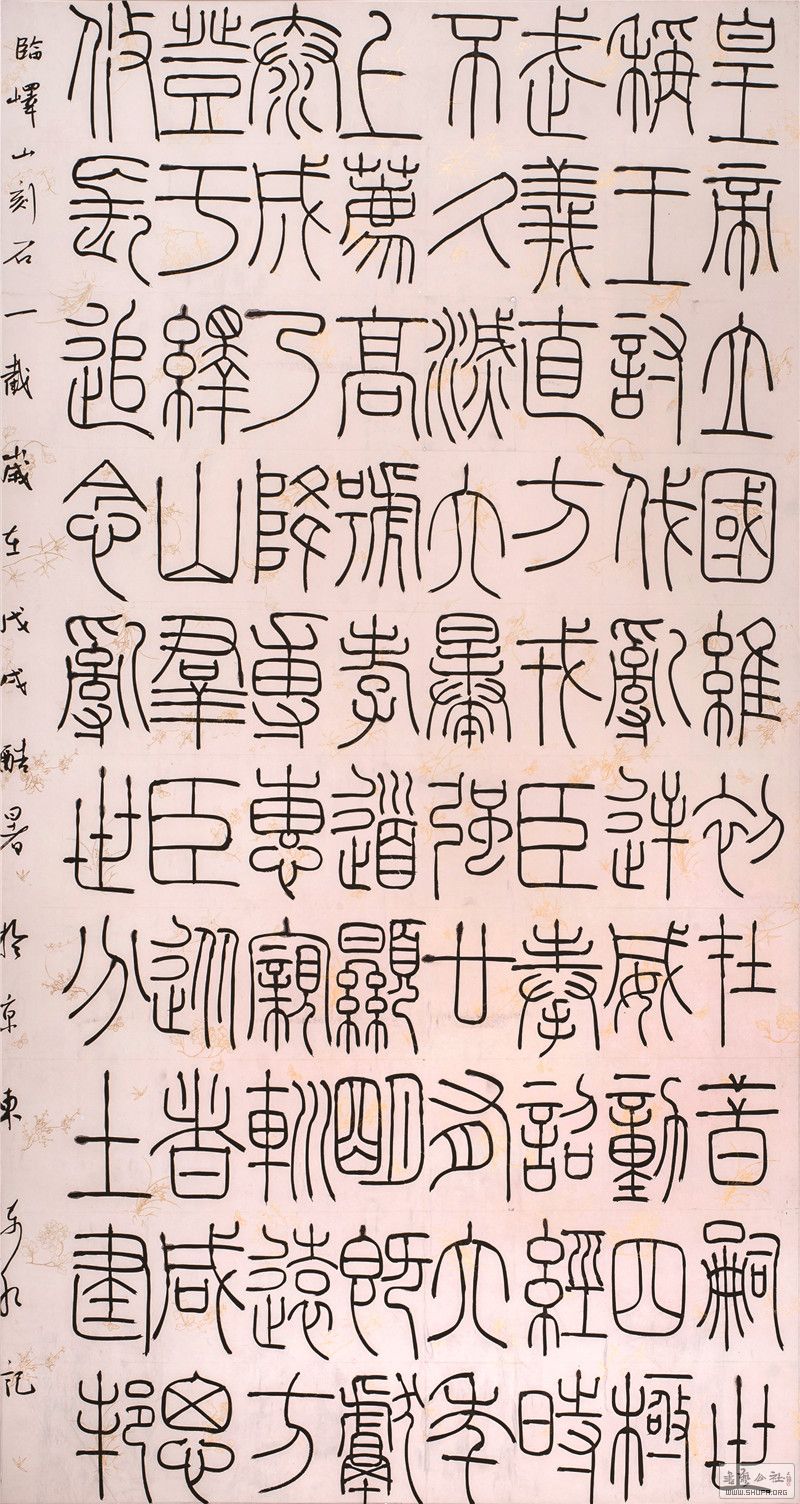 皇帝立國維初在昔嗣世
稱王討伐亂逆威動四極
武義直方戎臣奉詔經時
不久滅六暴強廿有六年
上薦高號孝道顯明既獻
泰成乃降專惠親巡遠方
登于繹山羣臣從者咸思
攸長追念亂世分土建邦
臨嶧山刻石一截歲在戊戌酷暑於京東記
書法公社
WWW.SHUFA.ORG